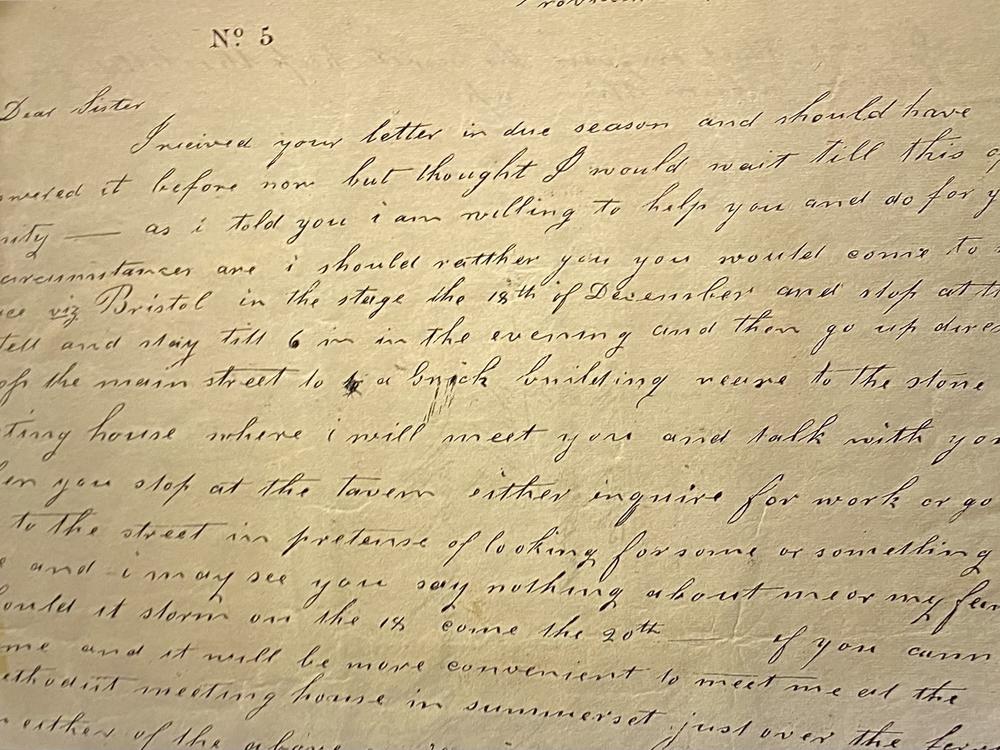 Nº 5
Dear Sister
I recieved your letter in due season and should have
it before now but thought I would wait till this
as i told you i am willing to help you and do for
circumstances are i should ratther you you would come to
viz Bristol in the stage the 18th of December and stop at
and stay till 6 in in the evening and then go up
the main street to a brick building neare to the stone
ting house where i will meet you and talk with
you stop at the tavern either inquire for work or go
to the street in pretense of looking for some or something
and i may see you say nothing about me or my
ould it storm on the 18 come the 20th — if you
me and it will be more convenient to meet me at the
ethodist meeting house in summerset just over the
either of the above